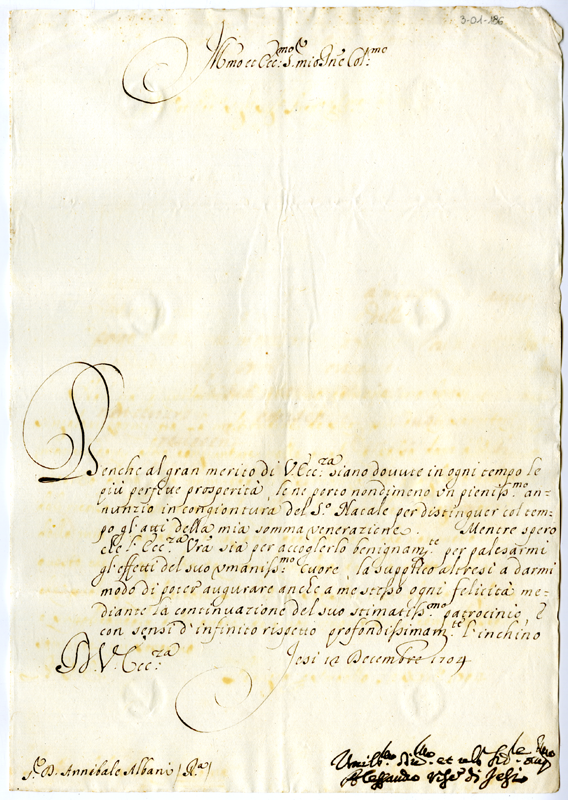 3-01-186
Illmo et Ecc:mo S.r mio Sig.re Col:mo
Benche al gran merito di V. Ecc:za siano dovute in ogni tempo le
più perfette prosperità, le ne porto nondimeno un pieniss:mo an-
nunzio in congiontura del S.o Natale per distinguer col tem-
po gl'atti della mia somma venerazione. Mentre spero
che l'Ecc:za Vra stà per accoglerlo benignam:te per palesarmi
gl'effetti del suo umaniss:mo cuore, la supplico altresi a darmi
modo di poter augurare anche a me stesso ogni felicità me-
diante la continuazione del suo stimatiss:mo patrocinio, E
con sensi d'infinito rispetto profondissimam:te l'inchino
D. V. Ecc:za
Jesi 12 Decembre 1704
S.r D. Annibale Albani (R.a)
Umil:mo div:mo et obl:
Alessandro Vesc.o di Jesi